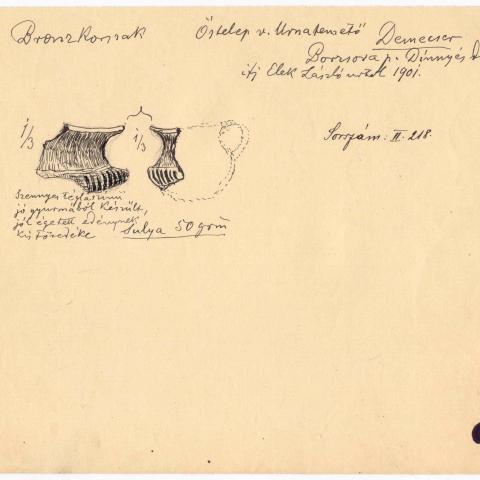 Bronzkorszak
Őstelep v. Urnatemető Demecser
Borzsova p. Dinnyés d
ifj Elek László urtól 1901.
Sorszám: II. 218.
1/3
1/3
Szennyes téglaszinü
jó gyurmából készült,
jól égetett edénynek
kis töredéke Sulya 50 grm